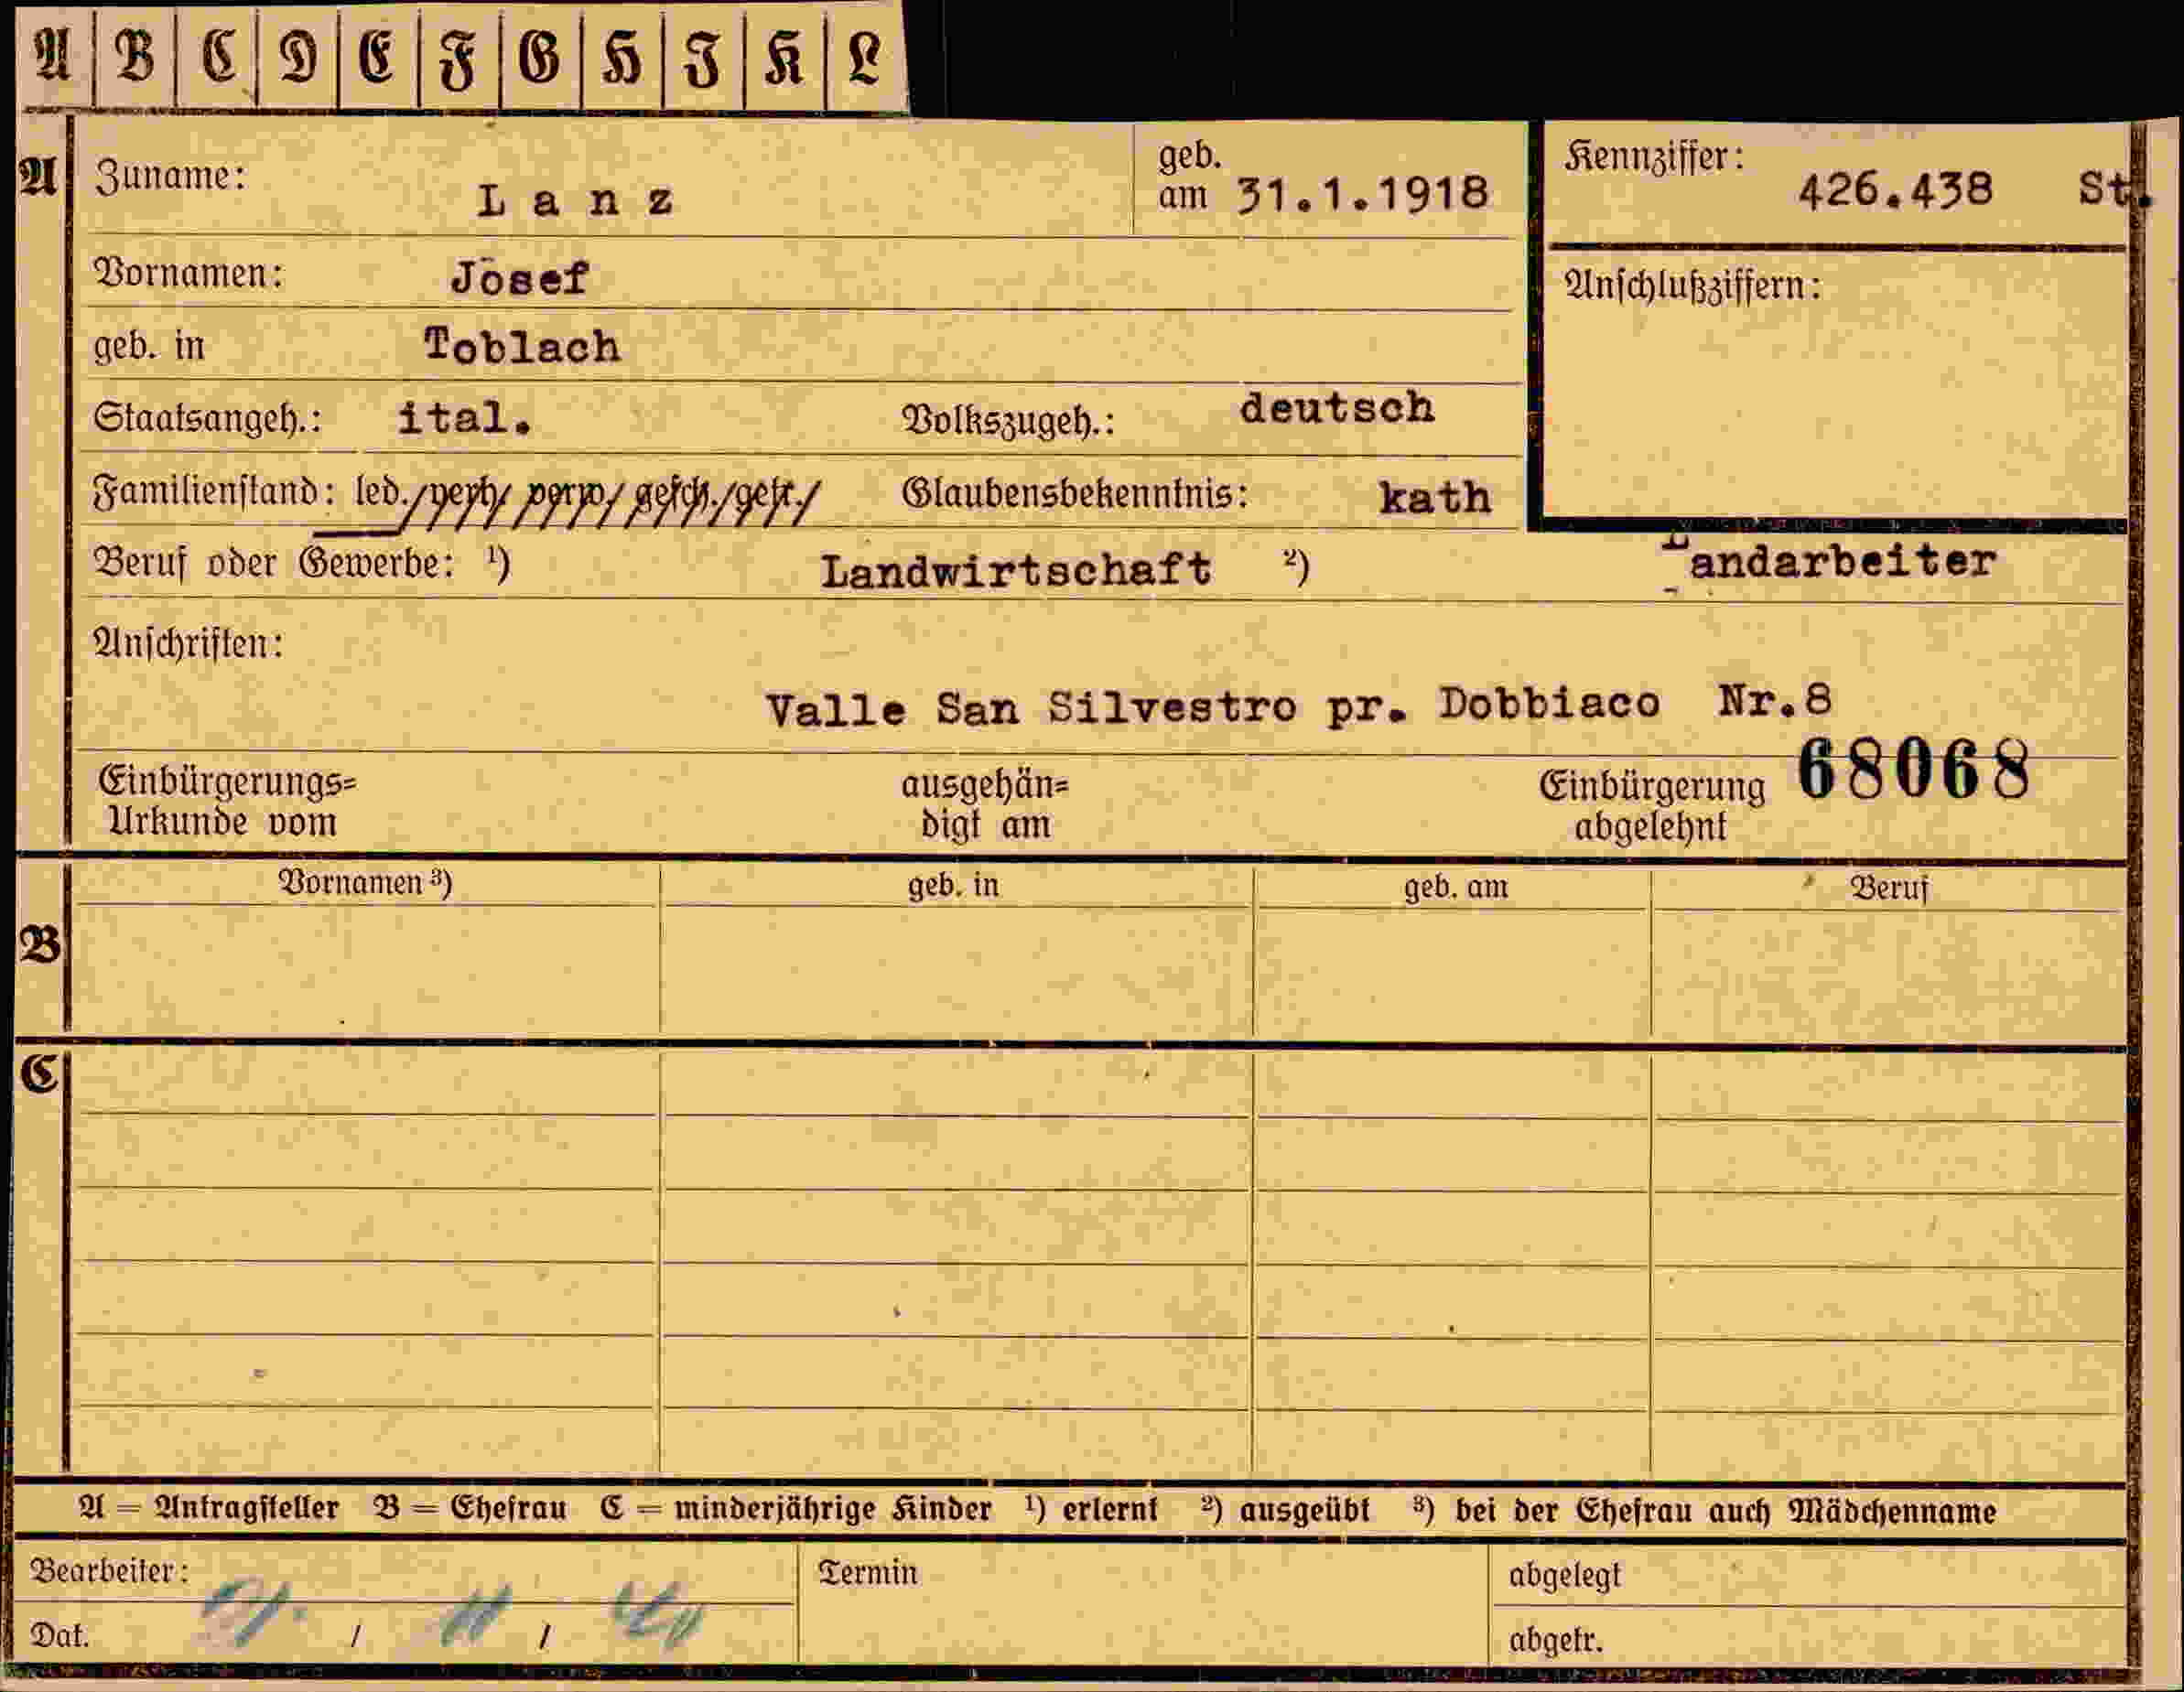 A B C D E F G H I K L
A Zuname: Lanz geb. am 31.1.1918 Kennziffer: 426.438 St.
Vornamen: Josef Anschlußziffern:
geb. in Toblach
Staatsangeh.: ital. Volkszugeh.: deutsch
Familienstand: led./verh/ verw/ gesch./getr./ Glaubensbekenntnis: kath
Beruf oder Gewerbe: ¹) Landwirtschaft ²) Landarbeiter
Anschriften:
Valle San Silvestro pr. Dobbiaco Nr.8
Einbürgerungs= ausgehän= Einbürgerung 68068
Urkunde vom digt am abgelehnt
Vornamen ³) geb. in geb. am Beruf
B
C
A = Antragsteller B = Ehefrau C = minderjährige Kinder ¹) erlernt ²) ausgeübt ³) bei der Ehefrau auch Mädchenname
Bearbeiter: Termin abgelegt
Dat. / / abgetr.